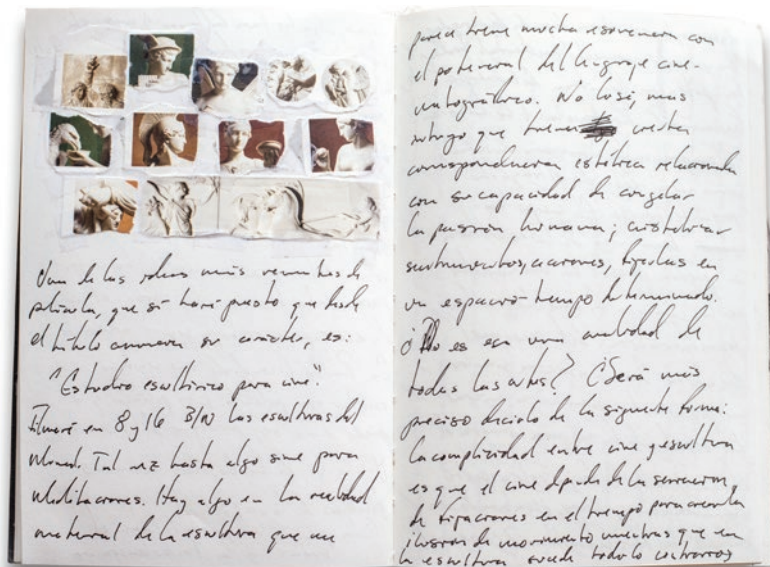 Una de las ideas más recientes de
película, que sí haré puesto que desde
el título anuncia su carácter, es:
"Estudio escultórico para cine".
Filmaré en 8 y 16 B/N las esculturas del
. Tal vez hasta algo sirve para
Meditaciones. Hay algo en la realidad
material de la escultura que me
parece tiene mucha resonancia con
el potencial del lenguaje cine-
matográfico. No lo sé, mas
intuyo que tienen cierta
correspondencia estética relacionada
con su capacidad de congelar
la pasión humana; cristalizar
sentimientos, acciones, fijarlas en
un espacio-tiempo determinado.
¿No es esa una cualidad de
todas las artes? ¿Será más
preciso decirlo de la siguiente forma:
la complicidad entre cine y escultura
es que el cine depende de la
de fijaciones en el tiempo para crear la
ilusión de movimiento mientras que en
la escultura sucede todo lo contrario?